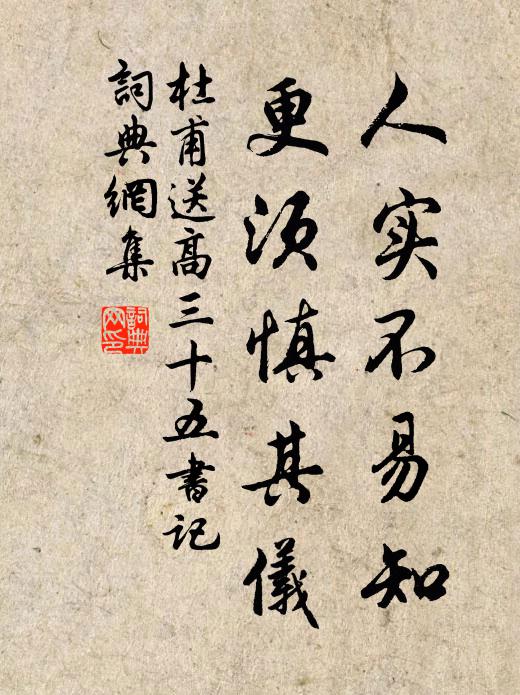 人实不易知
更须慎其儀
杜甫送高三十五書记
詞典網集
詞典網印